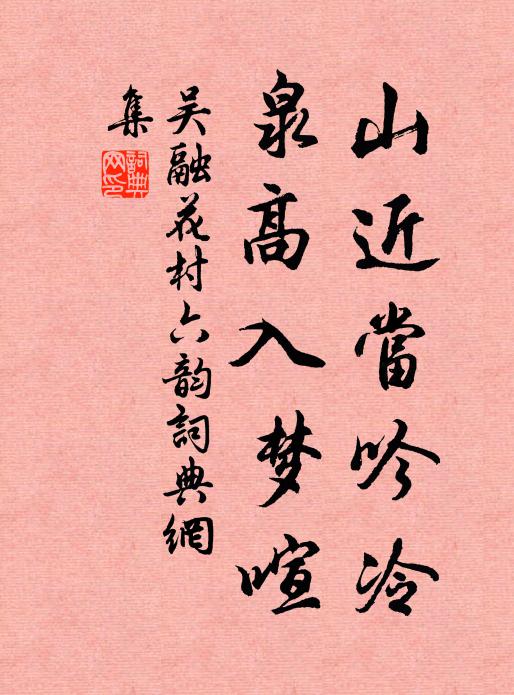 山近當吟冷
泉高入梦喧
吴融花村六韵詞典網
集
詞典
网印